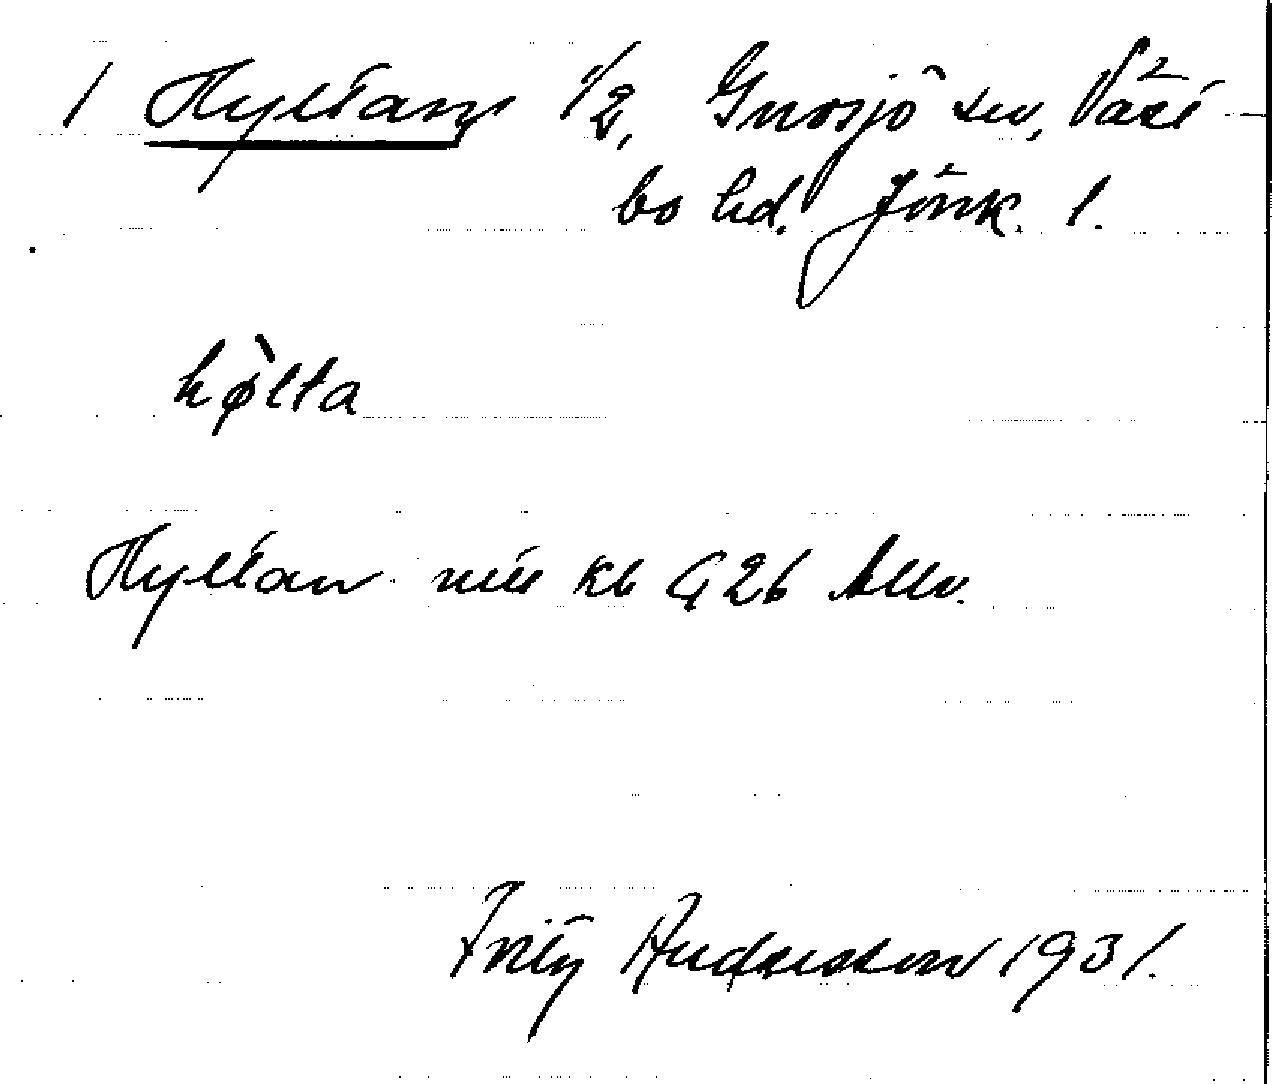 1 Hyltan 1/2, Gnosjö sn, Väst-
bo hd. Jönk. l.
hø̀lta
Hyltan nu kb G 26 Allv.
Fritz Andersson 1931.